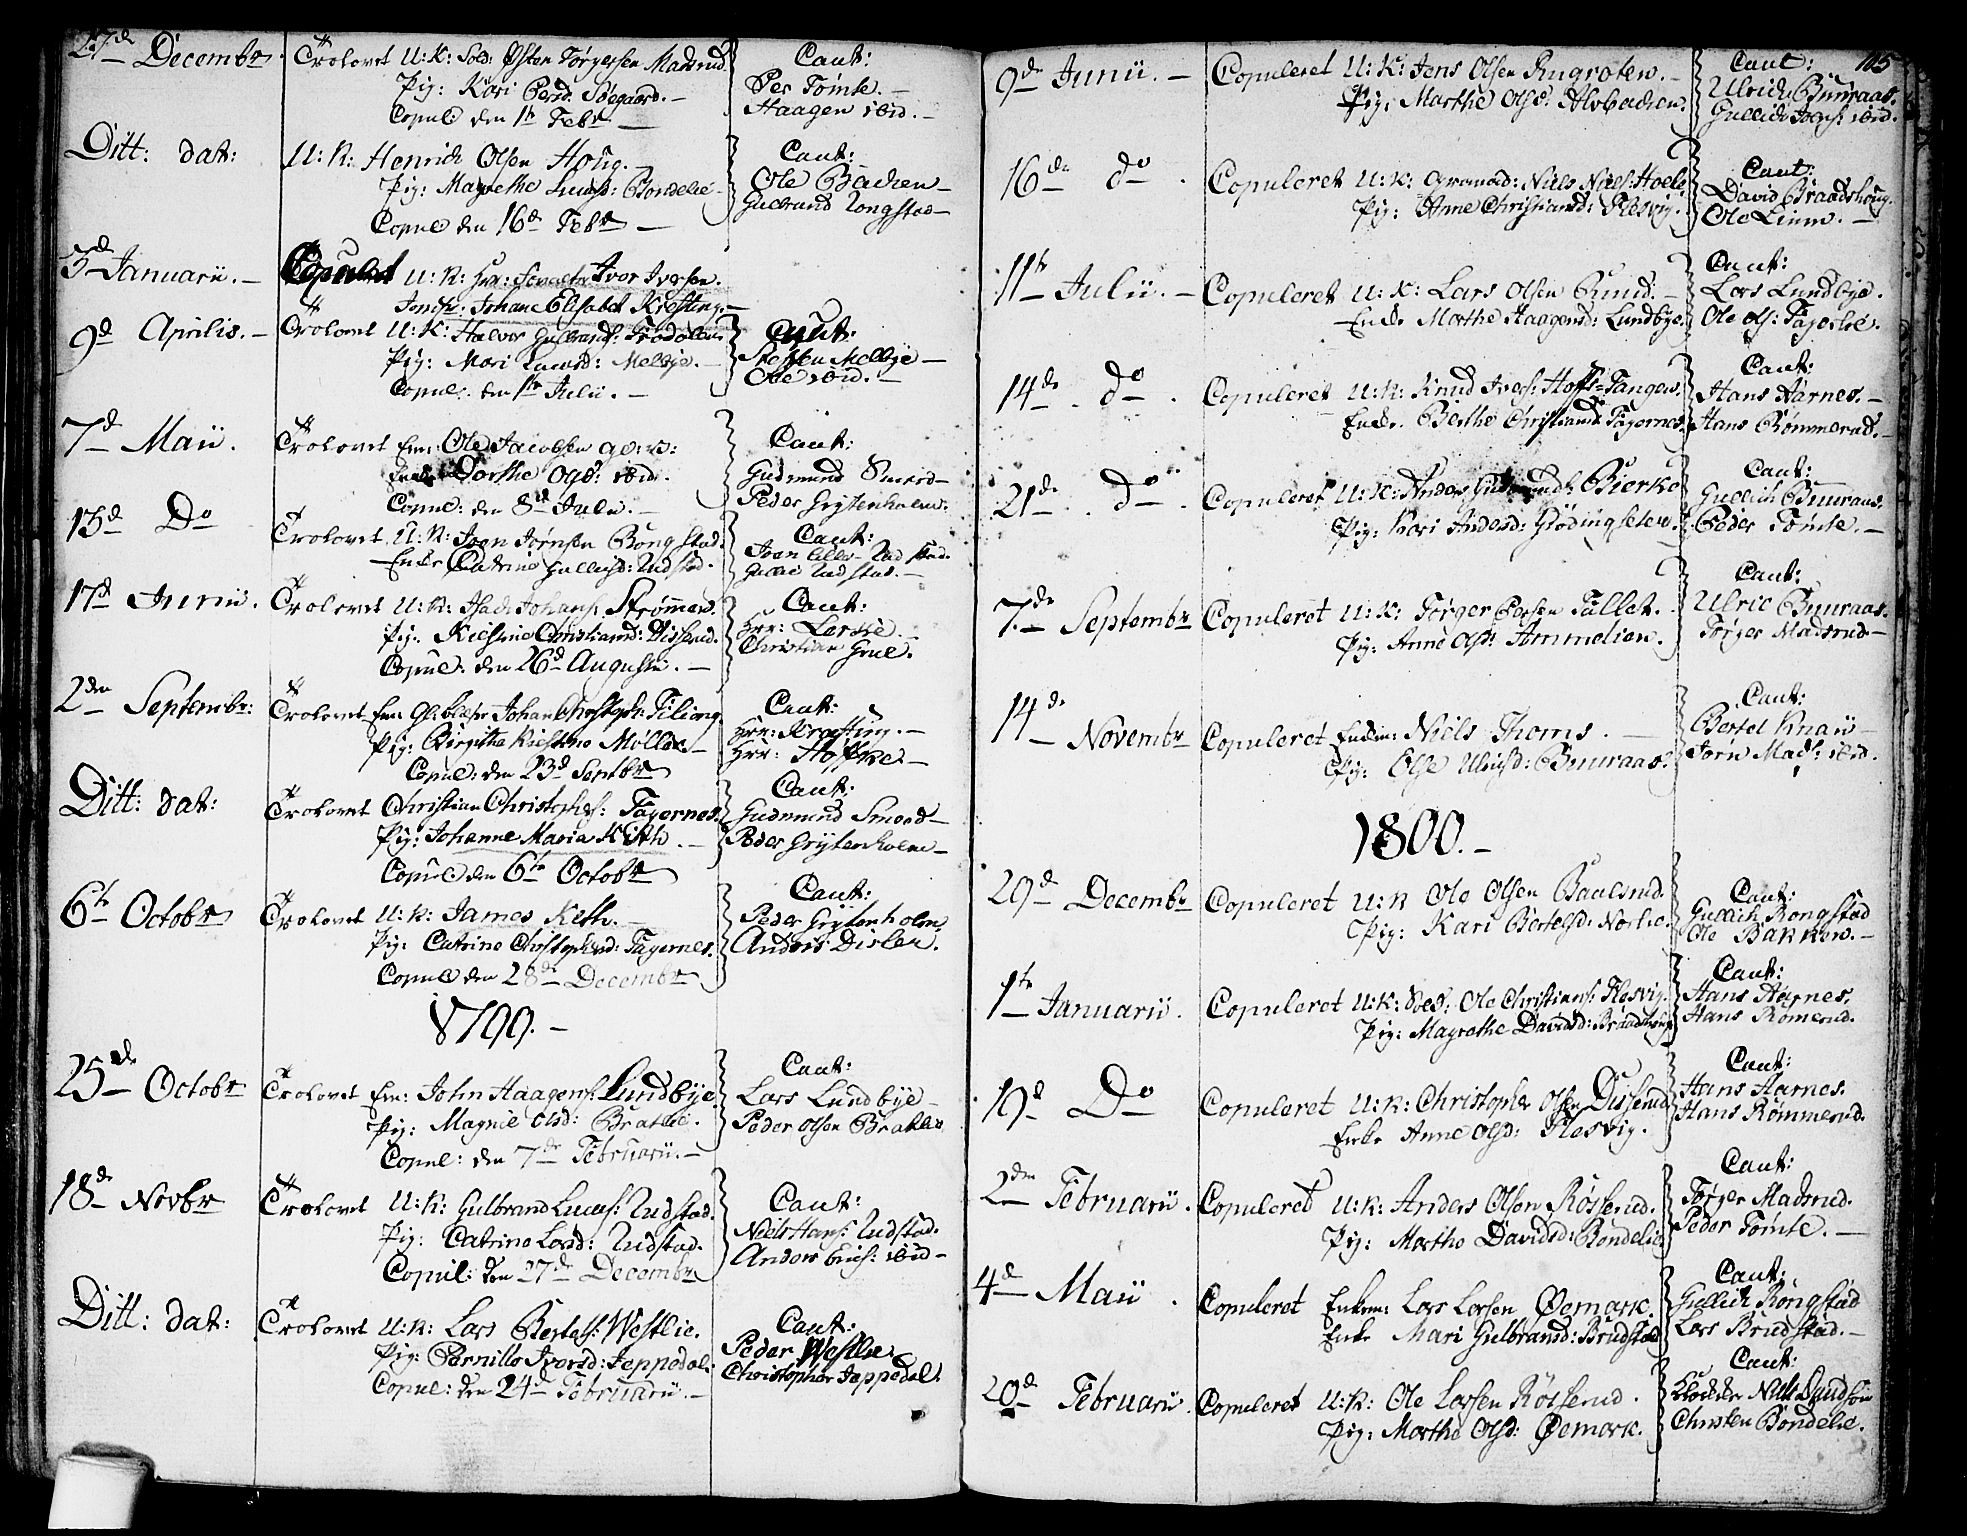 27de Decembr. Trolovet U: K: Sold: Østen Tørgersen Madsrud
Pig: Kari Persd. Søegaard. –
Copul den 1te Febr –
Caut:
Per Tømte. –
Haagen ibid. –
Ditt: dat: U: K: Henrich Olsen Houg. –
Pig: Magrethe Lucsd: Bondelie –
Copul den 16de Febr –
Caut:
Ole Bachen –
Gulbrand Rongstad –
5de Januarii. – Copulert U: K: Hrr: Ivar Iversen.
Jomfr: Johane Elisabet Kresting. –
9de Aprilis. – Trolovet U: K: Halvor Gulbrands:
Pig: Mari Lucsd: Melbye. –
Copul. den 1te Julii. –
Caut:
Steffen Melbye –
Ole ibid. –
7de Maii. Trolovet Em: Ole Jacobsen
Enke Dorthe Olsd: ibid.
Copul: den 8de Julii. –
Caut:
Gudmund Smed –
Peder Grytenholm.
15de Do Trolovet U: K: Joen Jørnsen Rongstad.
Enke Catrine Gulbrsd: Rudstad.
Caut:
Joen Rudstad.
Rudstad. –
17de Junii. Trolovet U: K: Johans: Strømmen.
Pig. Kirstine Christiansd: Disserud.
Copul: den 26de Augusti. –
Caut:
Hrr: Lerche. –
Christian Grue.
2den Septembr: Trolovet Em: Johan Christoph: Filiong.
Pig: Birgithe Kirstine Møller –
Copul: den 23de Septbr
Caut:
Hrr: Kresting. –
Hrr: Høffke –
Ditt: dat: Trolovet Christian Christophs: Fagernes.
Pig: Johanne Maria Kith. –
Copul den 6te Octobr
Caut:
Gudmund Smed –
Peder Grytenholm –
6te Octobr Trolovet U: K: James Keth. –
Pig: Catrine Christophersd: Fagernes.
Copul den 28de Decembr
Caut:
Peder Grytenholm.
Anders Dislen.
1799. –
25de Octobr Trolovet Em: John Haagens: Lundbye
Pig: Magnil Olsd: Bratlie.
Copul: den 7de Februarii. –
Caut:
Lars Lundbye –
Peder Olsen Bratlie
18de Novbr Trolovet U: K: Gulbrand Lucas: Rudstad.
Pig: Catrine Larsd: Rudstad.
Copul: den 27de Decembr
Caut:
Niels Hans: Rudstad.
Anders Erich: ibid –
Ditt: dat: Trolovet U: K: Lars Bertels: Westlie.
Pig: Pernille Iversd: Jeppedal:
Copul: den 24de Februarii. –
Caut:
Peder Westlie
Christopher Jeppedal.
105
9de Junii. – Copuleret U: K: Jens Olsen Rugroten. –
Pig: Marthe Olsd: Alvbachen.
Caut:
Ulrich Buuraas.
Gullich Joens: ibid.
16de do. Copuleret U: K: Niels Niels: Hoele
Pig: Anne Christiansd: Flesvig.
Caut:
David Braadshoug.
Ole Linm. –
11te Julii. – Copuleret U: K: Lars Olsen Ruud. –
Enke Marthe Haagensd: Lundbye.
Caut:
Lars Lundbye.
Ole Ols: Fagerlie.
14de do. Copuleret U: K: Knud Ivers: Hoffs=Tangen.
Enke. Berthe Christiansd: Fagernes.
Caut:
Hans Aarnes. –
Hans Rømmerud. –
21de do. Copuleret U: K: Anders Gudmunds: Bierke
Pig: Kari Andersd: Grødingseter.
Caut:
Gullich Buuraas.
Peder Tømte. –
7de Septembr Copuleret U: K: Tørger Persen Tallet.
Pig: Anne Olsd: Ammelien.
Caut:
Ulric Buuraas.
Tørger Madsrud –
14de Novembr Copuleret Enkem: Niels Thoms. –
Pig: Else Ulrichsd: Buuraas.
Caut:
Bertel Knai
Jørn Mads: ibid.
1800. –
29de Decembr Copuleret U: K Ole Olsen Baalsrud.
Pig: Kari Bertelsd: Norlie.
Caut:
Gullich Rongstad
Ole Bakken. –
1te Januarii. Copuleret U: K: Sold: Ole Christians: Flesvig.
Pig: Magrethe Davidsd: Braadshoug
Caut:
Hans Aarnes.
Hans Rømerud.
19de Do Copuleret U: K: Christopher Olsen Disserud
Enke Anne Olsd: Flesvig.
Caut:
Hans Aarnes.
Hans Rømmerud.
2den Februarii. Copuleret U: K: Anders Olsen Røsserud.
Pig: Marthe Davidsd: Bondelie.
Caut:
Tørger Madsrud.
Peder Tømte. –
4de Maii. Copuleret Enkem: Lars Larsen Øemark.
Enke Mari Gulbransd: Brudstad
Caut:
Gullich Rongstad
Lars Brudstad. –
20de Februarii. Copuleret U: K: Ole Larsen Røsserud.
Pig: Marthe Olsd: Øemark.
Caut:
Niels
Christen Bondelie.